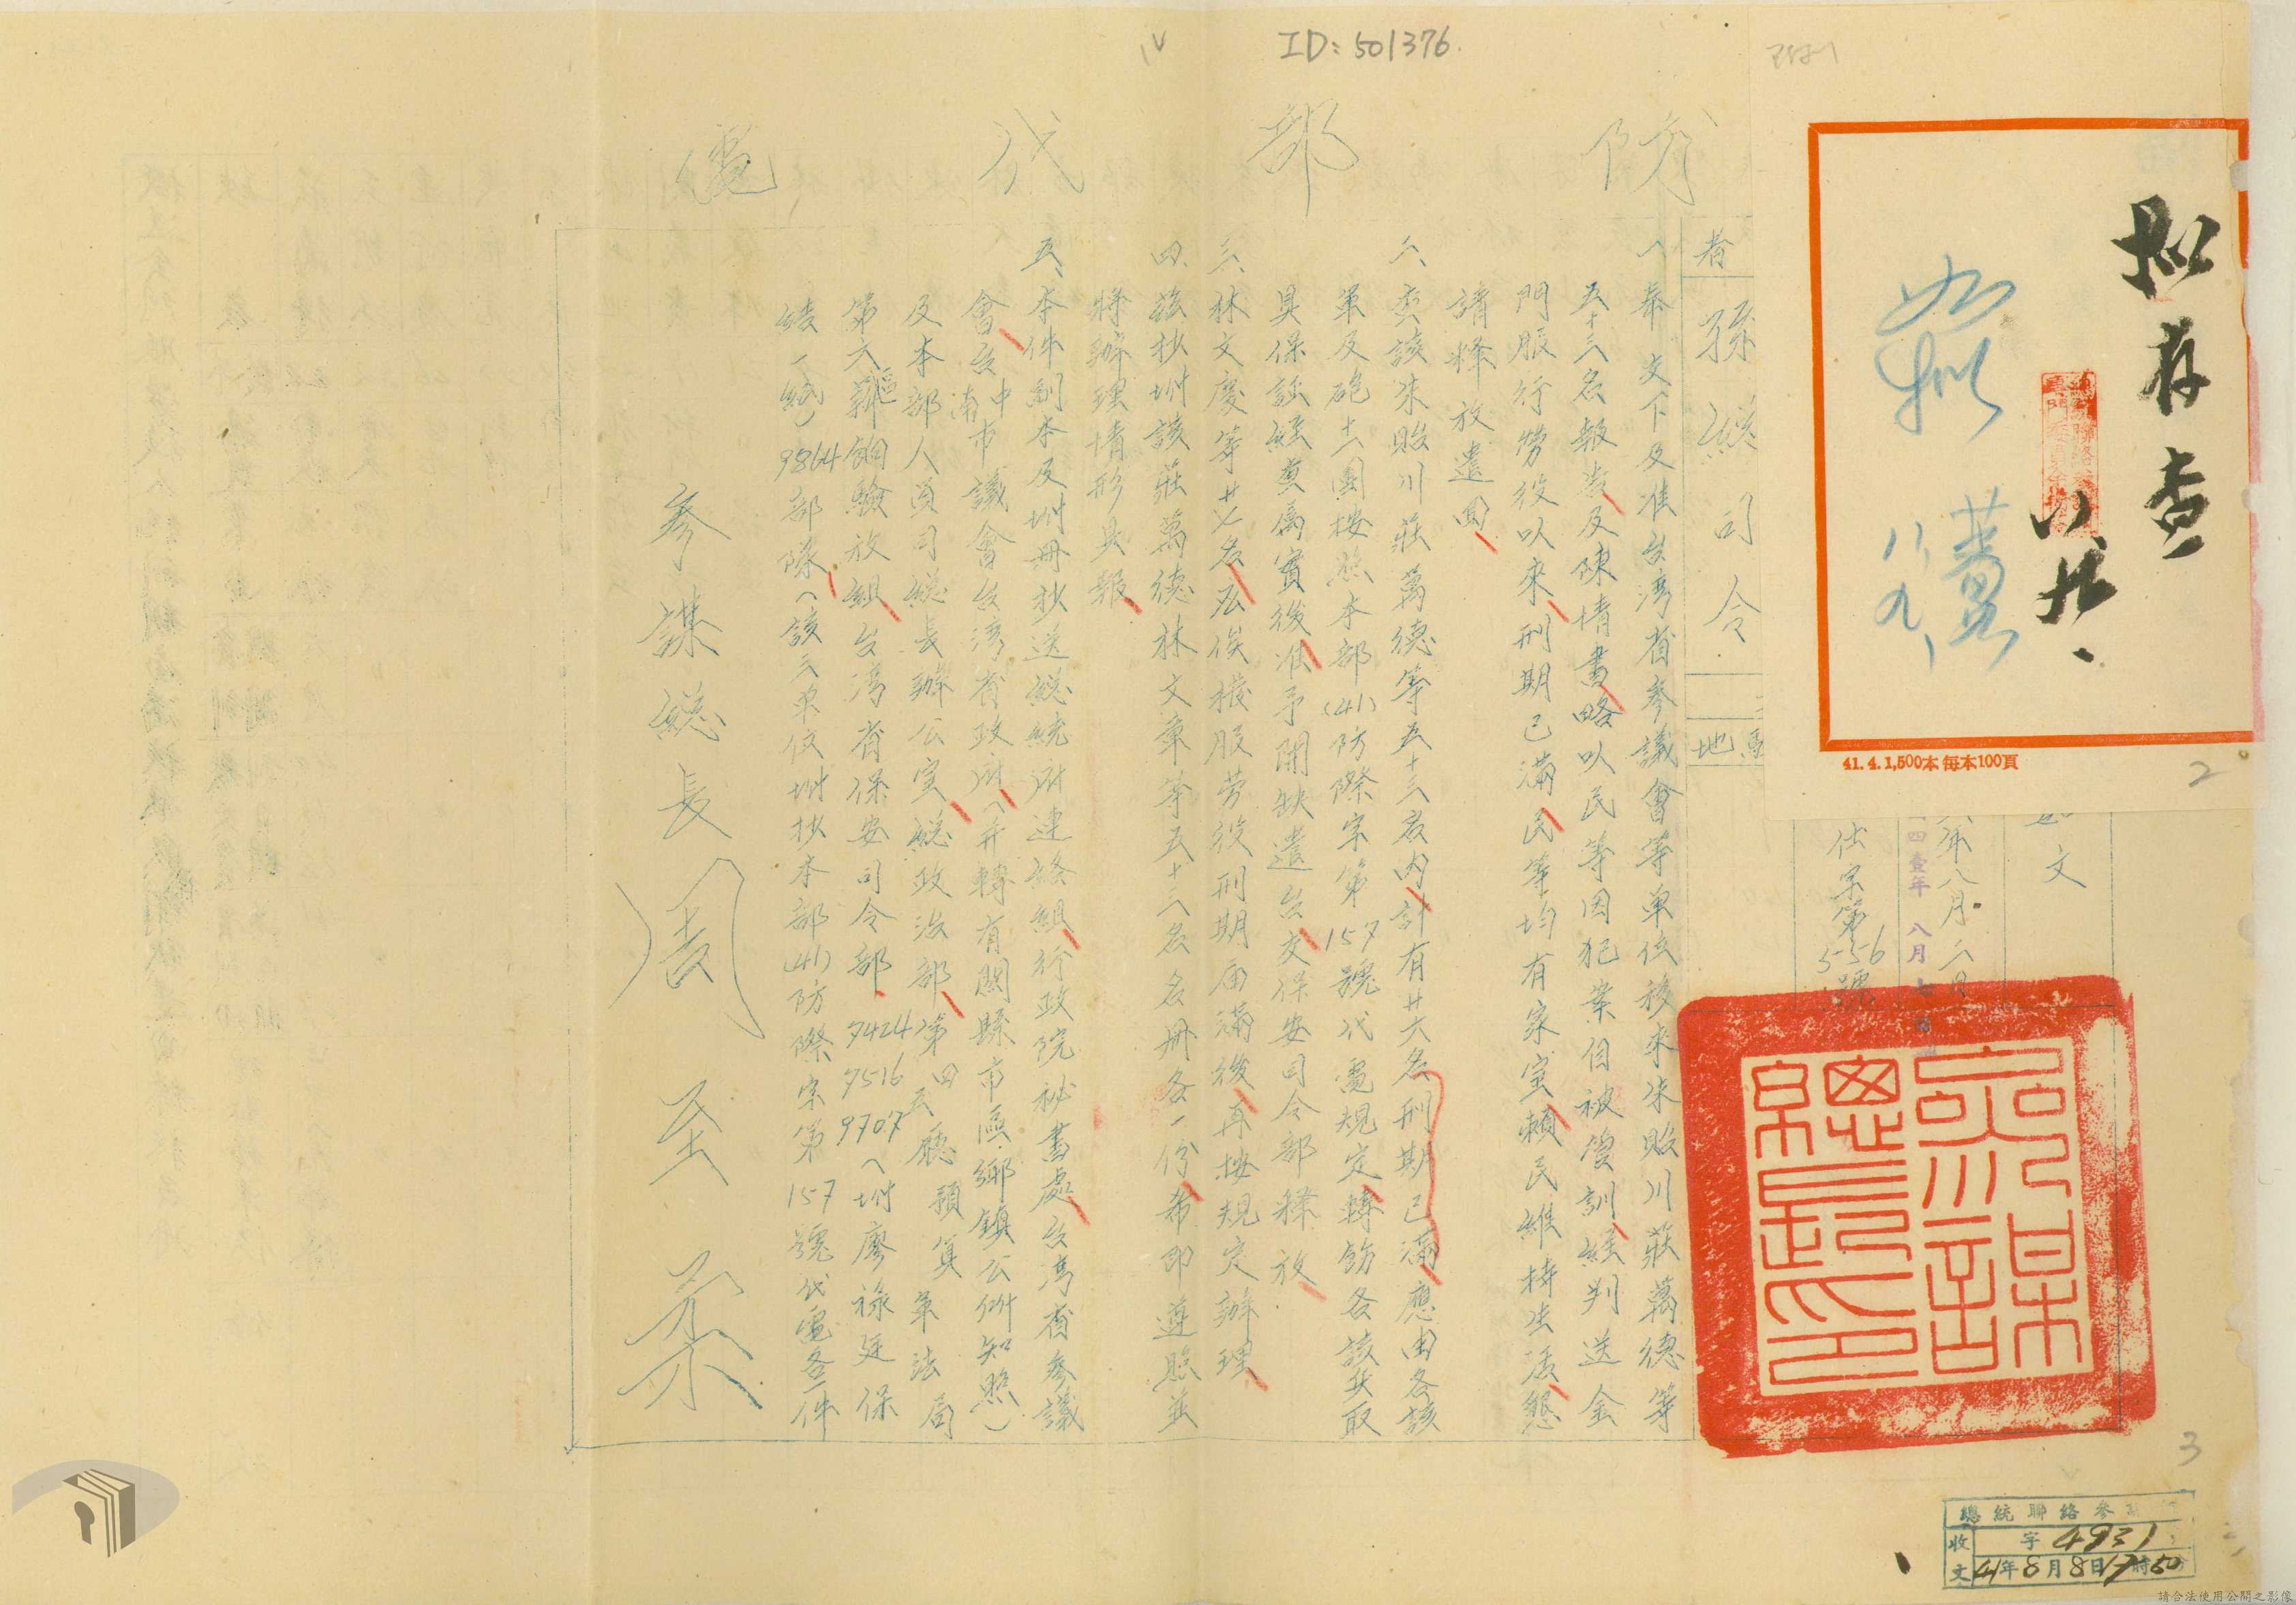 ID: 501376.
防部代電
擬存查
如擬
八、九、
41.4.1,500本每本100頁
2
文
八月二日
四壹年八月七
仕字第556號
者 孫總司令
地
一、奉 交下及准台灣省參議會等單位移來朱貽川莊萬德等
五十三名報告及陳情書略以民等因犯案自被浸訓經判送金
門服行勞役以來刑期已滿民等均有家室賴民維持生活懇
請釋放遣回
二、查該朱貽川莊萬德等五十三名內計有廿六名刑期已滿應由各該
軍及砲十一團按照本部(41)防際字第157號代電規定轉飭各該員取
具保証經奠屬實後准予開缺遣台交保安司令部釋放
三、林文慶等廿七名应俟機服劳役刑期屆滿後再按規定辦理
四、茲抄附該莊萬德林文章等五十三名名冊各一份希即遵照並
將辦理情形具報
五、本件副本及附冊抄送總統府連絡組行政院秘書處台灣省參議
會台中南市議會台灣省政府(并轉有關縣市區鄉鎮公所知照)
及本部人員司總長辦公室總政治部第四五廳預算軍法局
第六軀餉驗放組台灣省保安司令部9424 9516 9707(附廖祿廷保
結一紙)9864部隊(該三單位附抄本部(41)防際字第157號代電各一件
參謀總長周至柔
參謀總長印
3
總統聯絡參
收文 字4931
41年8月8日17時50分
請合法使用公開之影像